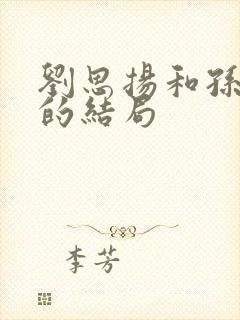 劉思揚和孫
的結局
李芳